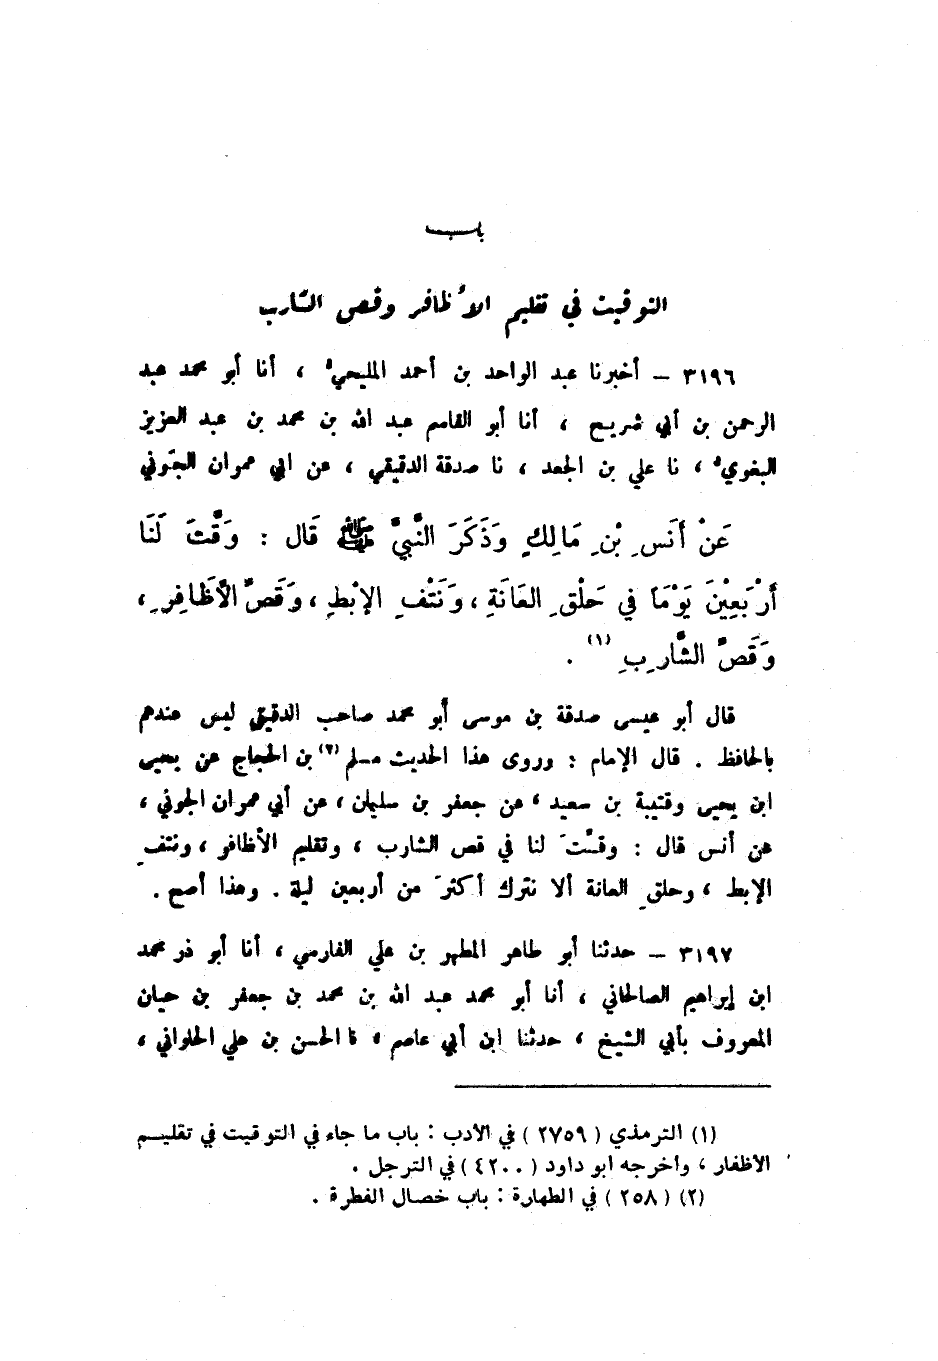 باب
التوقيت في تقليم الأظافر وقص الشارب
٣١٩٦ – أخبرنا عبد الواحد بن أحمد المليحيُ ، أنا أبو محمد عبد
الرحمن بن أبي شريح ، أنا أبو القاسم عبد الله بن محمد بن عبد العزيز
البغويُ ، نا علي بن الجعد ، نا صدقة الدقيقي ، عن ابي عمران الجَوني
عَنْ أَنَسِ بْنِ مَالِكٍ وَذَكَرَ النَّبِيَّ ﷺ قَال : وَقَّتَ لَنَا
أَرْبَعِيْنَ يَوْمَاً فِي حَلْقِ العَانَةِ ، وَنَتْفِ الإِبْطِ ، وَقَصِّ الأَظَافِرِ ،
وَقَصِّ الشَّارِبِ (١) .
قال أبو عيسى صدقة بن موسى أبو محمد صاحب الدقيق ليس عندهم
بالحافظ . قال الإمام : وروى هذا الحديث مسلم (٢) بن الحجاج عن يحيى
ابن يحيى وقتيبة بن سعيد ، عن جعفر بن سليمان ، عن أبي عمران الجوني ،
عن أنس قال : وقتَ لنا في قص الشارب ، وتقليم الأظافر ، ونتفِ
الإبط ، وحلقِ العانة ألا نترك أكثرَ من أربعين ليلة . وهذا أصح .
٣١٩٧ – حدثنا أبو طاهر المطهر بن علي الفارسي ، أنا أبو ذر محمد
ابن إبراهيم الصالحاني ، أنا أبو محمد عبد الله بن محمد بن جعفر بن حيان
المعروف بأبي الشيخ ، حدثنا ابن أبي عاصم ، نا الحسن بن علي الحلواني ،
(١) الترمذي ( ٢٧٥٩ ) في الأدب : باب ما جاء في التوقيت في تقليم
الأظفار ، وأخرجه ابو داود ( ٤٢٠٠ ) في الترجل .
(٢) ( ٢٥٨ ) في الطهارة : باب خصال الفطرة .